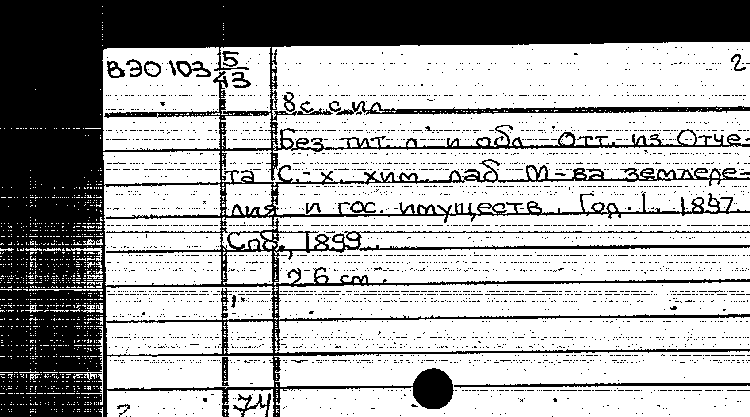 ВЭО 103 5/43 2
8с. с ил.
Без тит. л. и обл. Отт. из Отче-
та С.-х. хим. лаб. М-ва земледе-
лия и гос. имуществ. Год. I. 1897.
Спб., 1899.
26 см.
74
2